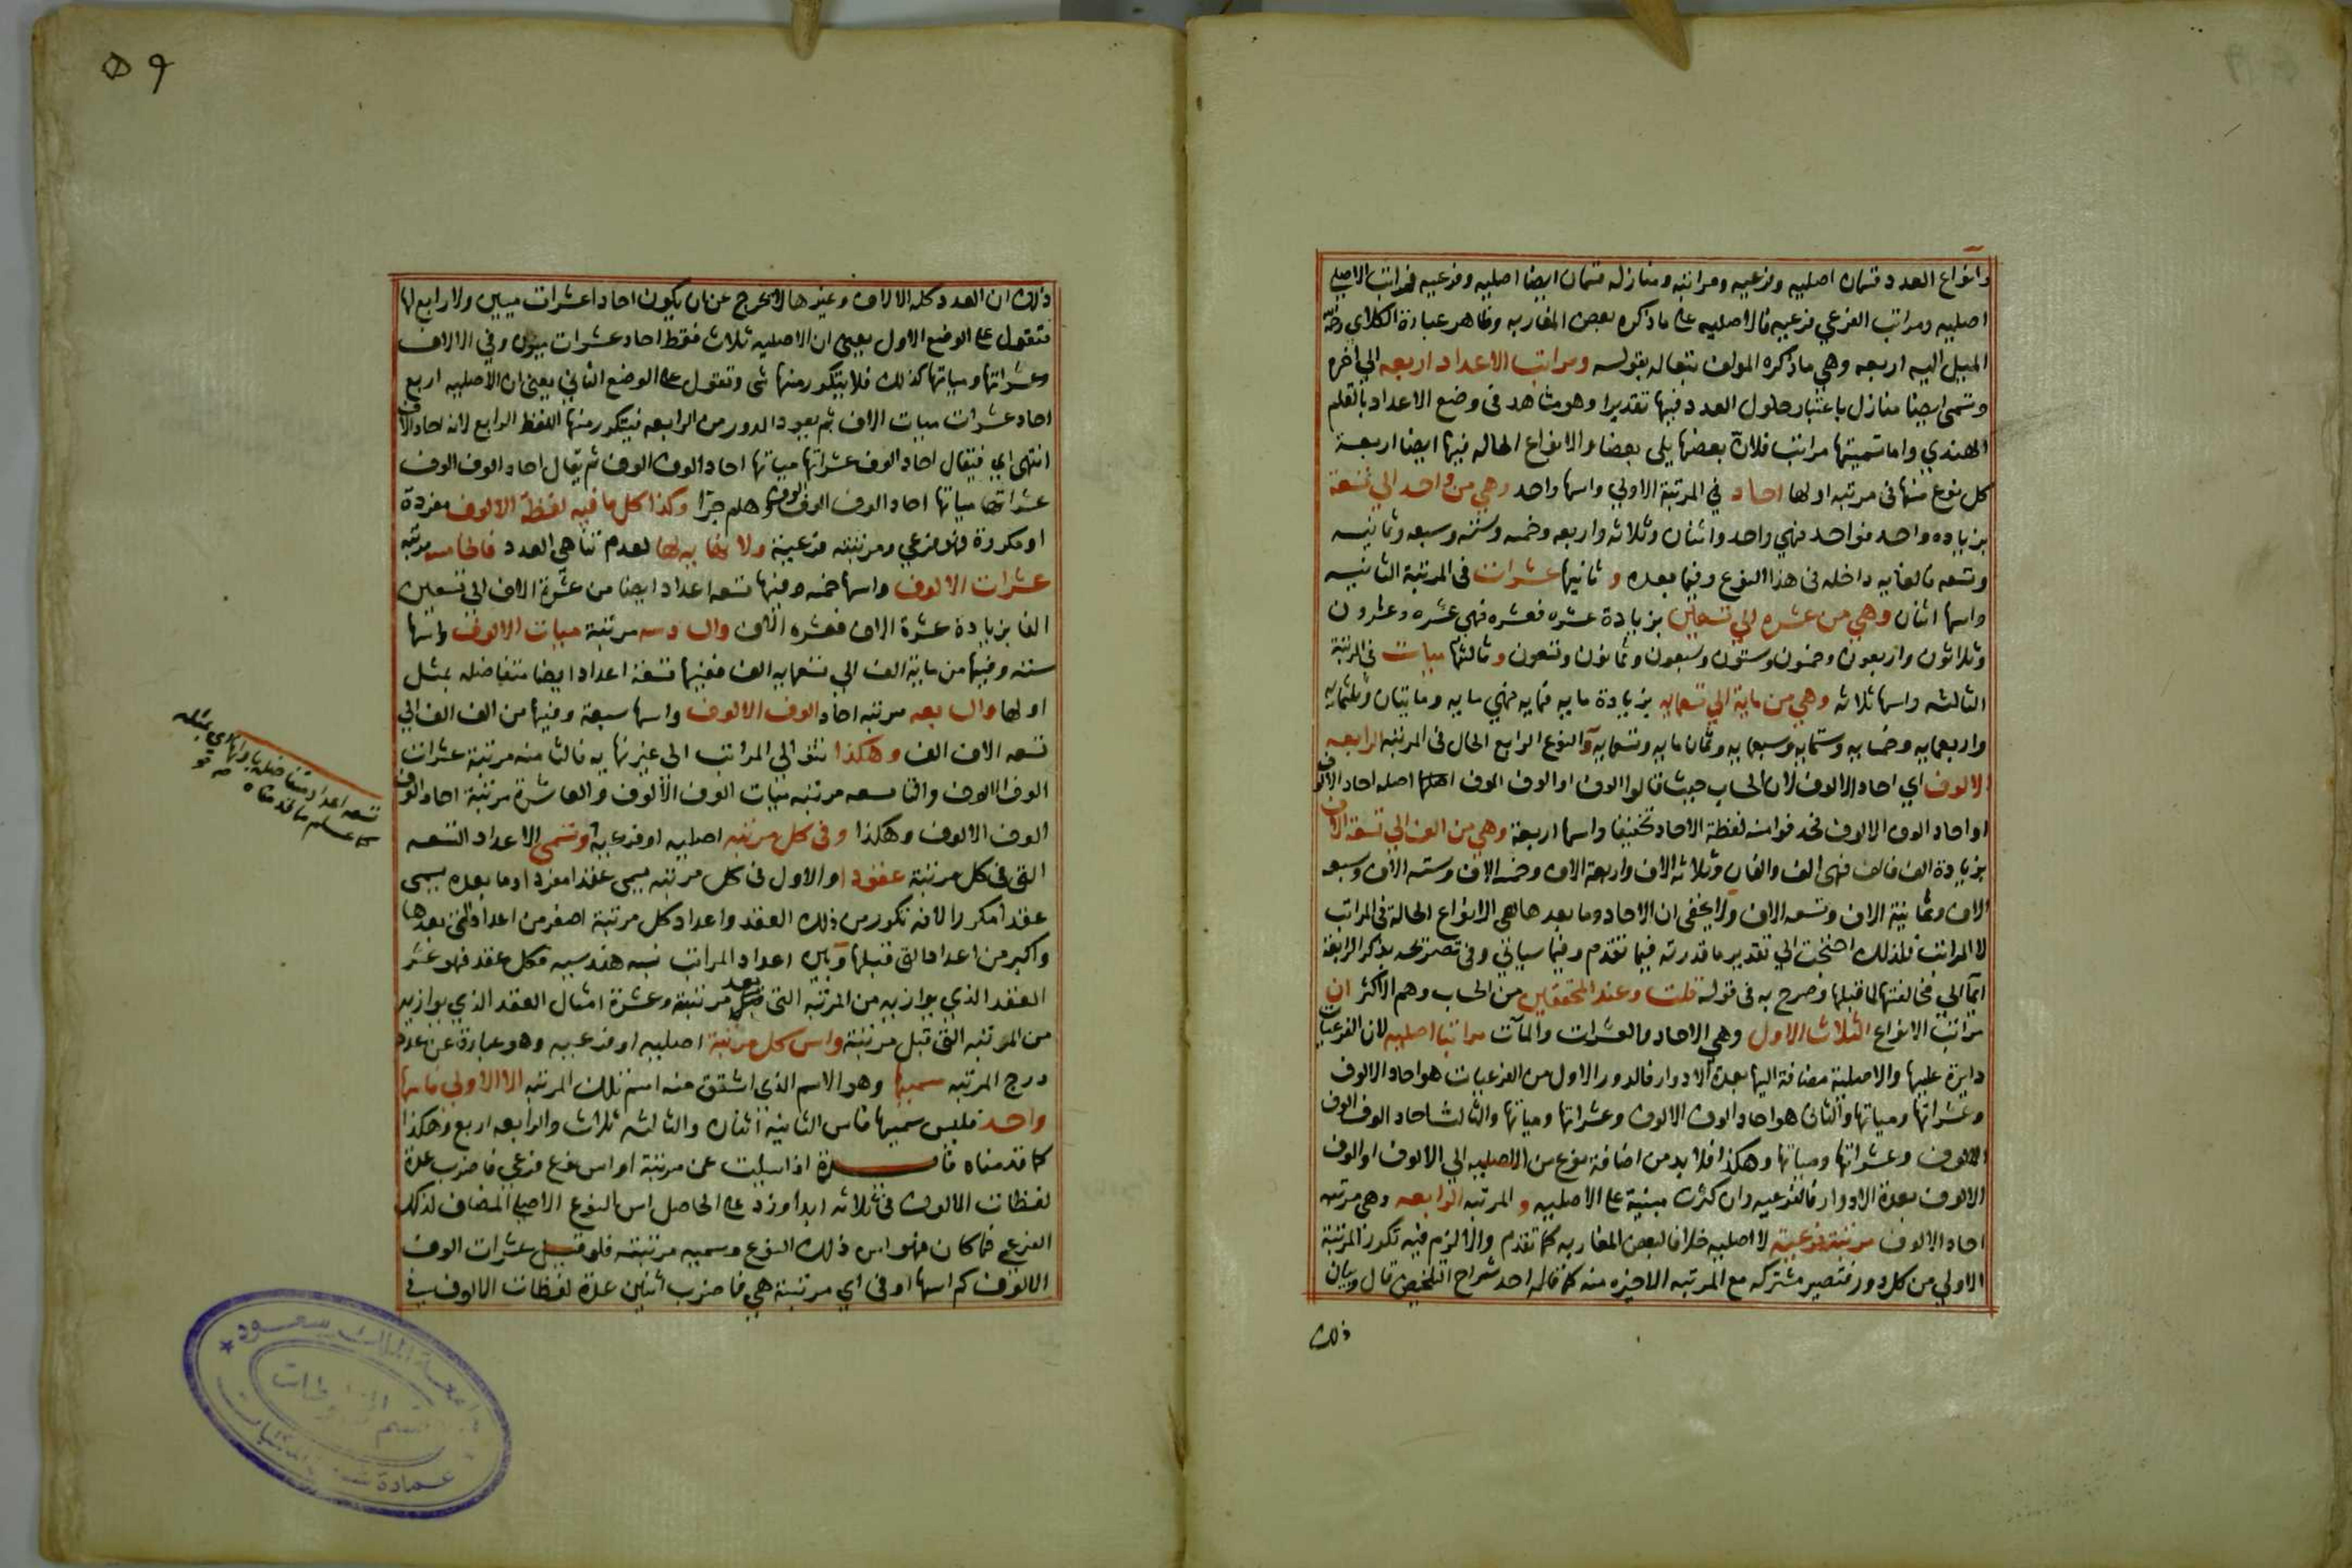 وانواع العدد قسمان اصليه وفرعيه ومراتبه ومنازله قسمان ايضا اصليه وفرعيه فمراتب الاصلي
اصليه ومراتب الفرعي فرعيه فالاصليه على ماذكره بعض المغاربه وظاهر عبارة الكلاي
الميل اليه اربعه وهي ماذكره المولف تبعا له بقوله ومراتب الاعداد اربعه الي اخره
وتسمى ايضا منازل باعتبار حلول العدد فيها تقديرا وهو مشاهد فى وضع الاعداد بالقلم
الهندي واما تسميتها مراتب فلان بعضها يلى بعضا والانواع الحاله فيها ايضا اربعة
كل نوع منها فى مرتبه اولها احاد في المرتبة الاولي واسها واحد وهي من واحد الي تسعة
بزياده واحد فواحد فهي واحد واثنان وثلاثه واربعه وخمسه وسته وسبعه وثمانيه
وتسعه فالغايه داخله فى هذا النوع وفيما بعده و ثانيها عشرات فى المرتبة الثانيه
واسها اثنان وهي من عشره الي تسعين بزيادة عشره فعشره فهي عشره وعشرون
وثلاثون واربعون وخمسون وستون وسبعون وثمانون وتسعون و ثالثها ميات في المرتبة
الثالثه واسها ثلاثه وهي من ماية الي تسعمايه بزيادة مايه فمايه فهي مايه ومايتان وثلثمايه
واربعمايه وخمسمايه وستمايه وسبعمايه وثمان مايه وتسعمايه والنوع الرابع الحال فى المرتبه الرابعه
الالوف اي احاد الالوف لان الحساب حيث قالوا الوف او الوف الوف اصله احاد الالوف
او احاد الوف الالوف فحذفوا منه لفظة الاحاد تخفيفا واسها اربعة وهي من الف الي تسعة الاف
بزيادة الف فالف فهى الف والفان وثلاثه الاف واربعة الاف وخمسه الاف وسته الاف وسبعه
الاف وثمانية الاف وتسعه الاف ولا يخفى ان الاحاد وما بعدها هى الانواع الحالة فى المراتب
لا المراتب فلذلك احتجت الي تقدير ماقدرته فيما تقدم وفيما سياتي وفى تصريحه بذكر الرابعة
ايما الي مخالفتها لما قبلها وصرح به فى قوله قلت وعند المحققين من الحساب وهم الاكثر ان
مراتب الانواع الثلاث الاول وهي الاحاد والعشرات والمآت مراتبها اصليه لان الفرعيات
دايرة عليها والاصلية مضافة اليها بعدة الادوار فالدور الاول من الفرعيات هو احاد الالوف
وعشراتها ومياتها والثاني هو احاد الوف الالوف وعشراتها ومياتها والثالث احاد الوف الوف
الالوف وعشراتها ومياتها وهكذا فلا بد من اضافة نوع من الاصليه الي الالوف او الوف
الالوف بعدة الادوار فالفرعيه وان كثرت مبنية على الاصليه و المرتبه الرابعه وهى مرتبه
احاد الالوف مرتبة فرعية لا اصليه خلافا لبعض المغاربه كما تقدم والا لزم فيه تكرر المرتبة
الاولي من كل دور فتصير مشتركه مع المرتبه الاخيره منه كما قاله احد شراح التلخيص قال وبيان
ذلك
ذلك ان العدد كله الالاف وغيرها لا يخرج عن ان يكون احادا عشرات ميين ولا رابع لها
فتقول على الوضع الاول يعنى ان الاصليه ثلاث فقط احاد عشرات ميون وفي الالاف
وعشراتها ومياتها كذلك فلا يتكرر منها شى وتقول على الوضع الثاني يعنى ان الاصليه اربع
احاد عشرات ميات الاف ثم يعود الدور من الرابعه فيتكرر منها اللفظ الرابع لانه احاد الاف
انتهى اي فيقال احاد الوف عشراتها مياتها احاد الوف الوف ثم يقال احاد الوف الوف
عشراتها مياتها احاد الوف الوف الوف وهلم جرا وكذا كل ما فيه لفظة الالوف مفردة
او مكررة فنوع فرعي ومرتبته فرعية ولا نهايه لها لعدم تناهى العدد فالخامسه مرتبه
عشرات الالوف واسها خمسه وفيها تسعه اعداد ايضا من عشرة الاف الى تسعين
الفا بزيادة عشرة الاف فعشره الاف والسادسه مرتبة ميات الالوف واسها
سته وفيها من ماية الف الي تسعمايه الف ففيها تسعة اعداد ايضا متفاضله بمثل
اولها والسابعه مرتبه احاد الوف الالوف واسها سبعة وفيها من الف الف الي
تسعه الاف الف وهكذا تتوالي المراتب الى غير نهايه فالثامنه مرتبة عشرات
الوف الالوف والتاسعه مرتبه ميات الوف الالوف والعاشرة مرتبة احاد الوف
الوف الالوف وهكذا وفى كل مرتبه اصليه او فرعيه وتسمى الاعداد التسعه
التى فى كل مرتبة عقودا والاول فى كل مرتبه يسمى عقدا مفردا وما بعده يسمى
عقدا مكررا لانه تكرر من ذلك العقد واعداد كل مرتبة اصغر من اعداد التى بعدها
واكبر من اعداد التى قبلها وبين اعداد المراتب نسبه هندسيه فكل عقد فهو عشر
العقد الذي يوازيه من المرتبه التى بعد مرتبته وعشرة امثال العقد الذي يوازيه
من المرتبه التى قبل مرتبته واس كل مرتبة اصليه او فرعيه وهو عبارة عن عدد
درج المرتبه سميها وهو الاسم الذي اشتق منه اسم تلك المرتبه الا الاولي فاسها
واحد فليس سميها فاس الثانيه اثنان والثالثه ثلاث والرابعه اربع وهكذا
كما قدمناه فايدة اذا سيلت عن مرتبة او اس نوع فرعي فاضرب عدة
لفظات الالوف فى ثلاثه ابدا وزد على الحاصل اس النوع الاصلي المضاف لذلك
الفرعي فما كان فهو اس ذلك النوع وسميه مرتبته فلو قيل عشرات الوف
الالوف كم اسها او فى اي مرتبة هي فاضرب اثنين عدة لفظات الالوف في
تسعه اعداد متفاضله باولها اي بمثله
كما علم مما قدمناه
جامعة الملك سعود
قسم المخطوطات
عمادة شئون المكتبات